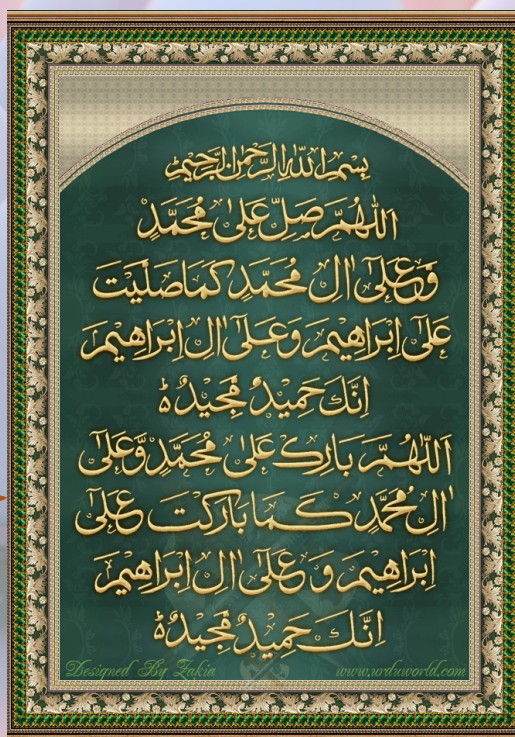 بِسْمِ اللّٰهِ الرَّحْمٰنِ الرَّحِيْمِ
اَللّٰهُمَّ صَلِّ عَلٰى مُحَمَّدٍ
وَّعَلٰٓى اٰلِ مُحَمَّدٍ كَمَا صَلَّيْتَ
عَلٰٓى اِبْرَاهِيْمَ وَعَلٰٓى اٰلِ اِبْرَاهِيْمَ
اِنَّكَ حَمِيْدٌ مَّجِيْدٌ ۵
اَللّٰهُمَّ بَارِكْ عَلٰى مُحَمَّدٍ وَّعَلٰٓى
اٰلِ مُحَمَّدٍ كَمَا بَارَكْتَ عَلٰٓى
اِبْرَاهِيْمَ وَعَلٰٓى اٰلِ اِبْرَاهِيْمَ
اِنَّكَ حَمِيْدٌ مَّجِيْدٌ ۵
Designed By Zakia www.urduworld.com